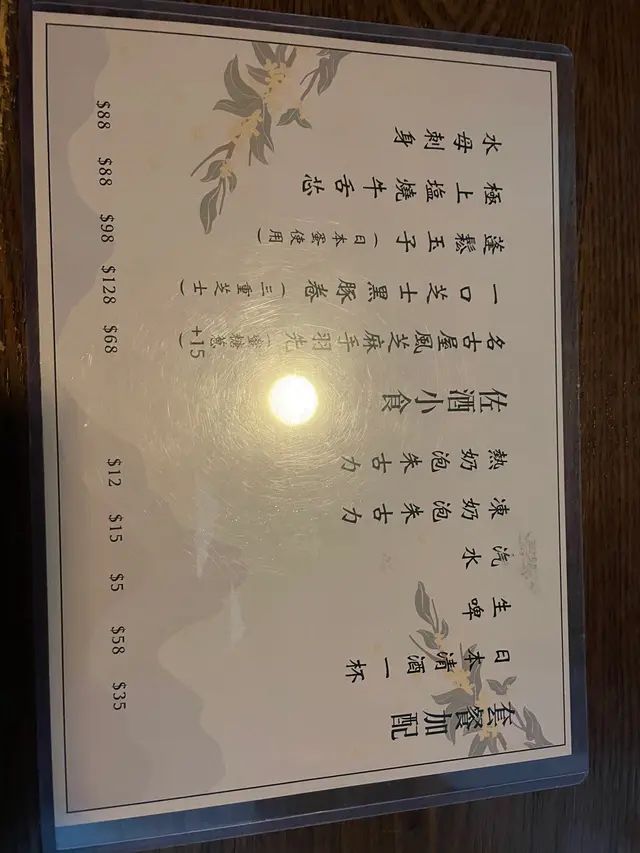 套餐加配
日本清酒一杯 $35
生啤 $58
汽水 $5
凍奶泡朱古力 $15
熱奶泡朱古力 $12
佐酒小食
名古屋風芝麻手羽先(蜜糖葱+15) $68
一口芝士黑豚卷(三重芝士) $128
蓬鬆玉子(日本蛋使用) $98
極上塩燒牛舌芯 $88
水母刺身 $88